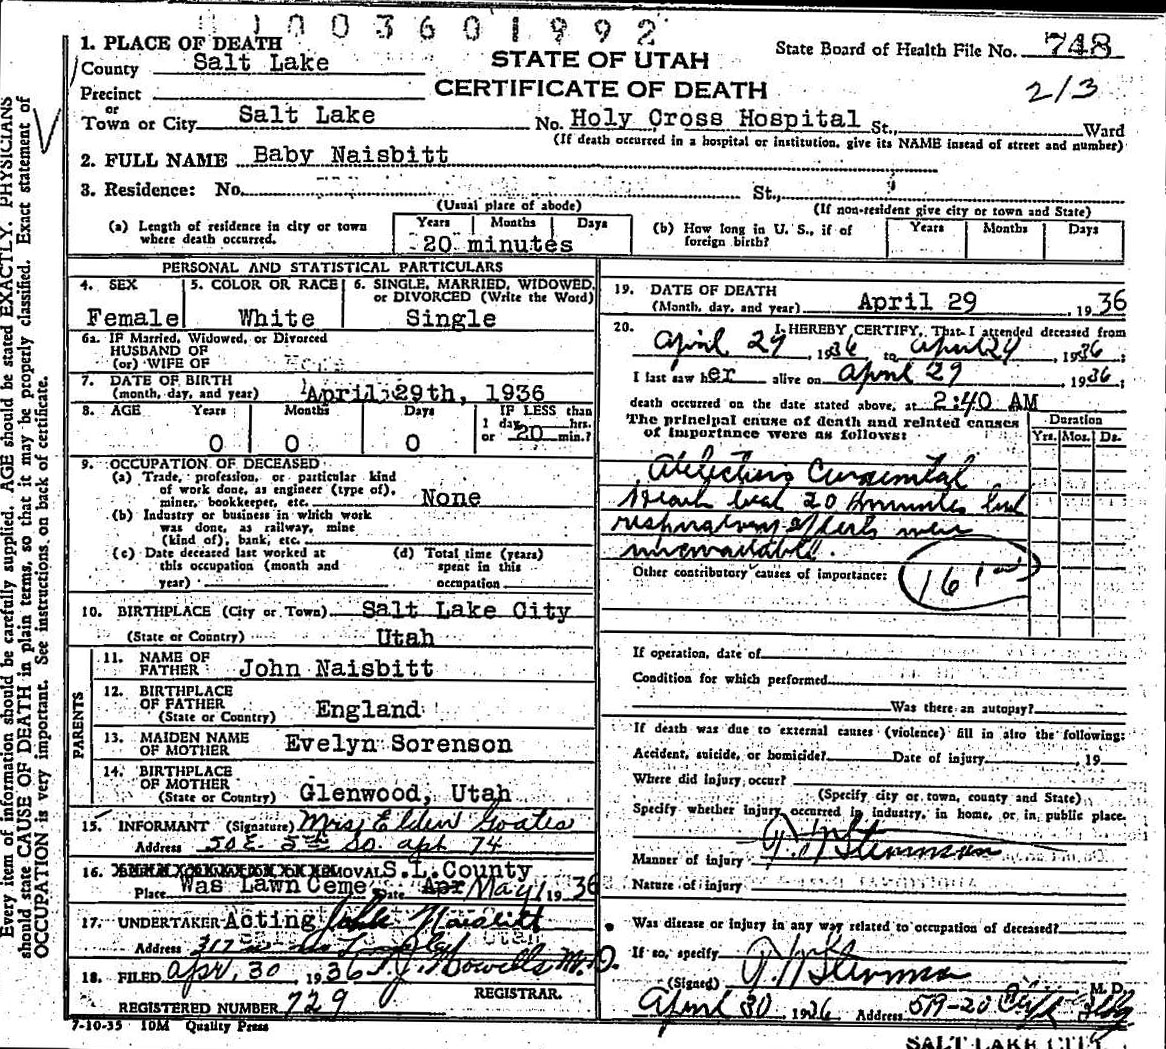 1003601992
1. PLACE OF DEATH
County Salt Lake
STATE OF UTAH
State Board of Health File No. 748
Precinct
CERTIFICATE OF DEATH
2/3
or
Town or City Salt Lake No. Holy Cross Hospital St., Ward
(If death occurred in a hospital or institution, give its NAME instead of street and number)
2. FULL NAME Baby Naisbitt
3. Residence: No. St.,
(Usual place of abode)
(If non-resident give city or town and State)
(a) Length of residence in city or town where death occurred.
Years Months Days
20 minutes
(b) How long in U. S., if of foreign birth?
Years Months Days
PERSONAL AND STATISTICAL PARTICULARS
4. SEX
Female
5. COLOR OR RACE
White
6. SINGLE, MARRIED, WIDOWED, or DIVORCED (Write the Word)
Single
6a. IF Married, Widowed, or Divorced
HUSBAND OF
(or) WIFE OF
7. DATE OF BIRTH
(month, day, and year) April 29th, 1936
8. AGE Years Months Days IF LESS than
1 day, hrs.
0 0 0 or 20 min.?
9. OCCUPATION OF DECEASED
(a) Trade, profession, or particular kind
of work done, as engineer (type of),
miner, bookkeeper, etc. None
(b) Industry or business in which work
was done, as railway, mine
(kind of), bank, etc.
(c) Date deceased last worked at
this occupation (month and
year)
(d) Total time (years)
spent in this
occupation
10. BIRTHPLACE (City or Town) Salt Lake City
(State or Country) Utah
PARENTS
11. NAME OF
FATHER John Naisbitt
12. BIRTHPLACE
OF FATHER
(State or Country) England
13. MAIDEN NAME
OF MOTHER Evelyn Sorenson
14. BIRTHPLACE
OF MOTHER
(State or Country) Glenwood, Utah
15. INFORMANT (Signature) Mrs Elden Goates
Address 50 E. 5th So. apt 74
16. REMOVAL S.L. County
Place Was Lawn Ceme Date Apr May 1 1936
17. UNDERTAKER Acting John Naisbitt
Address 317
Utah
18. FILED Apr. 30, 1936 T. J. Howells M.D.
REGISTRAR.
REGISTERED NUMBER 729
7-10-35 10M Quality Press
19. DATE OF DEATH
(Month, day, and year) April 29, 1936
20. I HEREBY CERTIFY, That I attended deceased from
April 29, 1936 to April 29, 1936;
I last saw her alive on April 29 1936;
death occurred on the date stated above, at 2:40 AM
The principal cause of death and related causes
of importance were as follows:
Duration
Yrs. Mos. Ds.
Atelectasis Congenital
Heart beat 20 minutes but
respiratory efforts were
unavailable.
Other contributory causes of importance:
161
If operation, date of
Condition for which performed
Was there an autopsy?
If death was due to external causes (violence) fill in also the following:
Accident, suicide, or homicide? Date of injury, 19
Where did injury occur?
(Specify city or town, county and State)
Specify whether injury occurred in industry, in home, or in public place.
Manner of injury
Nature of injury
Was disease or injury in any way related to occupation of deceased?
If so, specify
(Signed) M. D.
April 30, 1936 Address 519-20 Bldg
SALT LAKE CITY
Every item of information should be carefully supplied. AGE should be stated EXACTLY. PHYSICIANS
should state CAUSE OF DEATH in plain terms, so that it may be properly classified. Exact statement of
OCCUPATION is very important. See instructions on back of certificate.